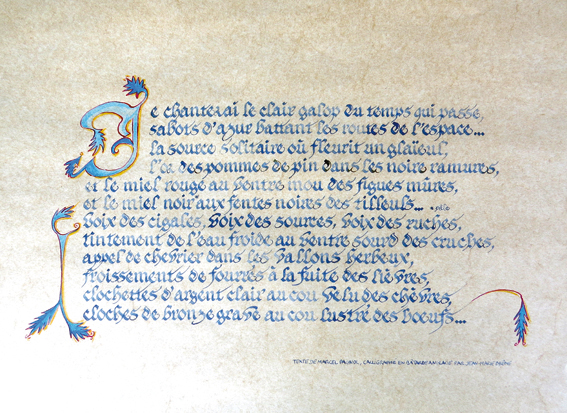 Je chanterai le clair galop du temps qui passe,
sabots d'azur battant les routes de l'espace...
la source solitaire où fleurit un glaïeul,
l'or des pommes de pin dans les noire ramures,
et le miel rouge au ventre mou des figues mûres,
et le miel noir aux fentes noires des tilleuls...
voix des cigales, voix des sources, voix des ruches,
tintement de l'eau froide au ventre sourd des cruches,
appel de chevrier dans les vallons herbeux,
froissements de fourrés à la fuite des lièvres,
clochettes d'argent clair au cou velu des chèvres,
cloches de bronze grave au cou lustré des boeufs...
TEXTE DE MARCEL PAGNOL, CALLIGRAPHIE EN PAR JEAN-MARIE